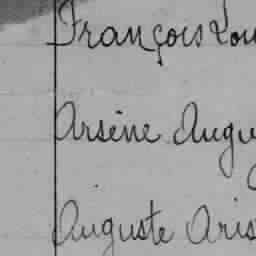 François Lou
Arsène Augu
Auguste Aris